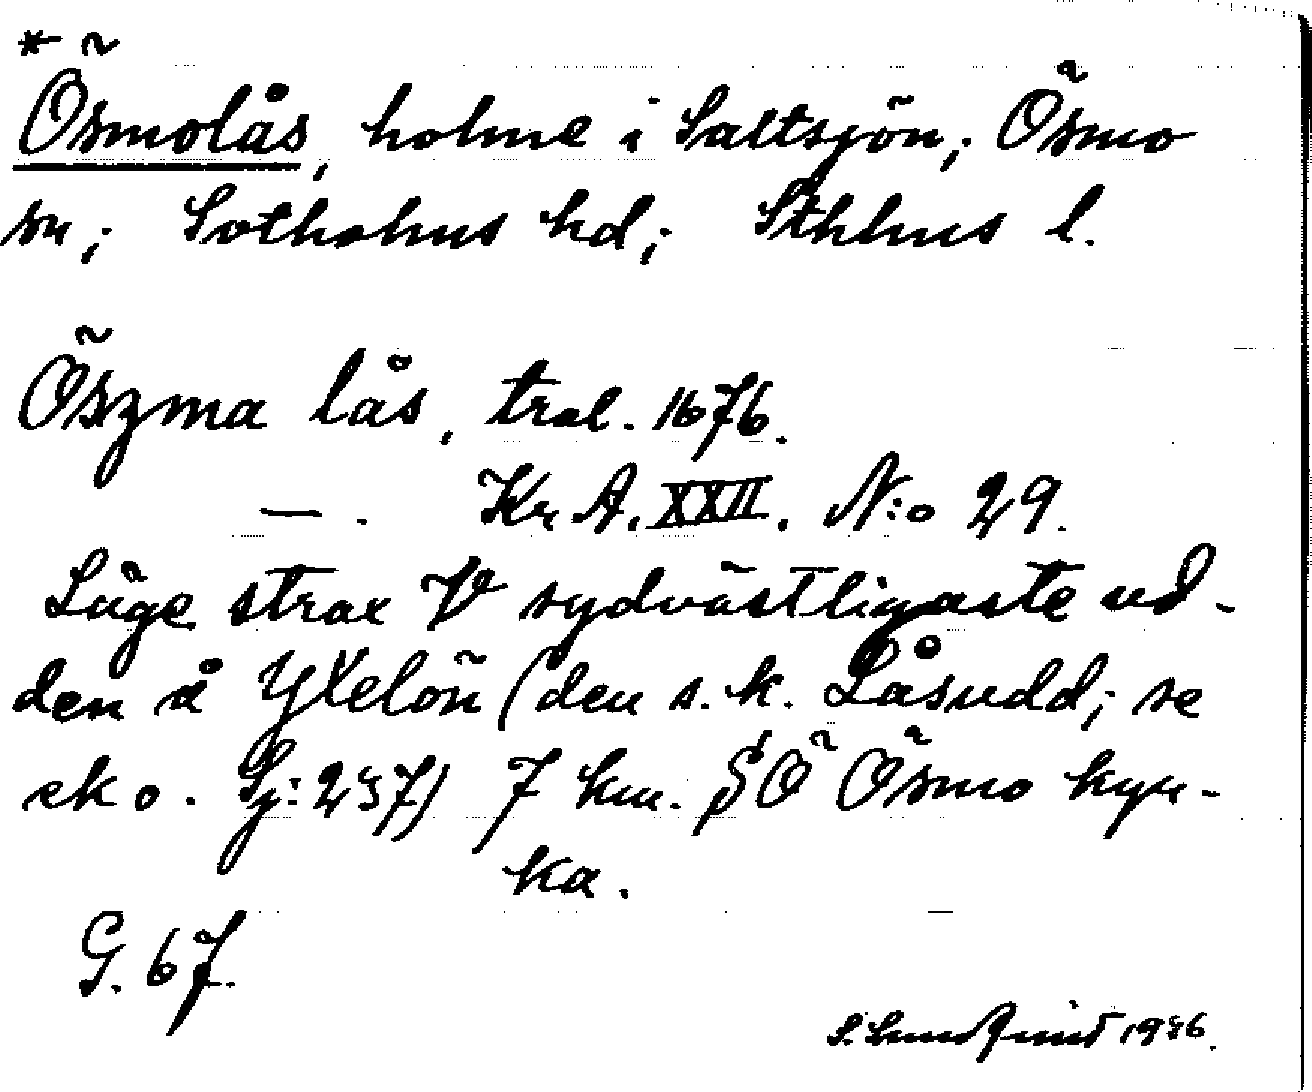 * Ösmolås, holme i Saltsjön; Ösmo
sn; Sotholms hd; Sthlms l.
Öszma lås, tral. 1676.
— . Kr A. XXII. N:o 29.
Läge strax V sydvästligaste ud-
den å Yxelön (den s. k. Låsudd; se
eko. Gj: 237) 7 km. SÖ Ösmo kyr-
ka.
G. 67.
S. Lundqvist 1936.